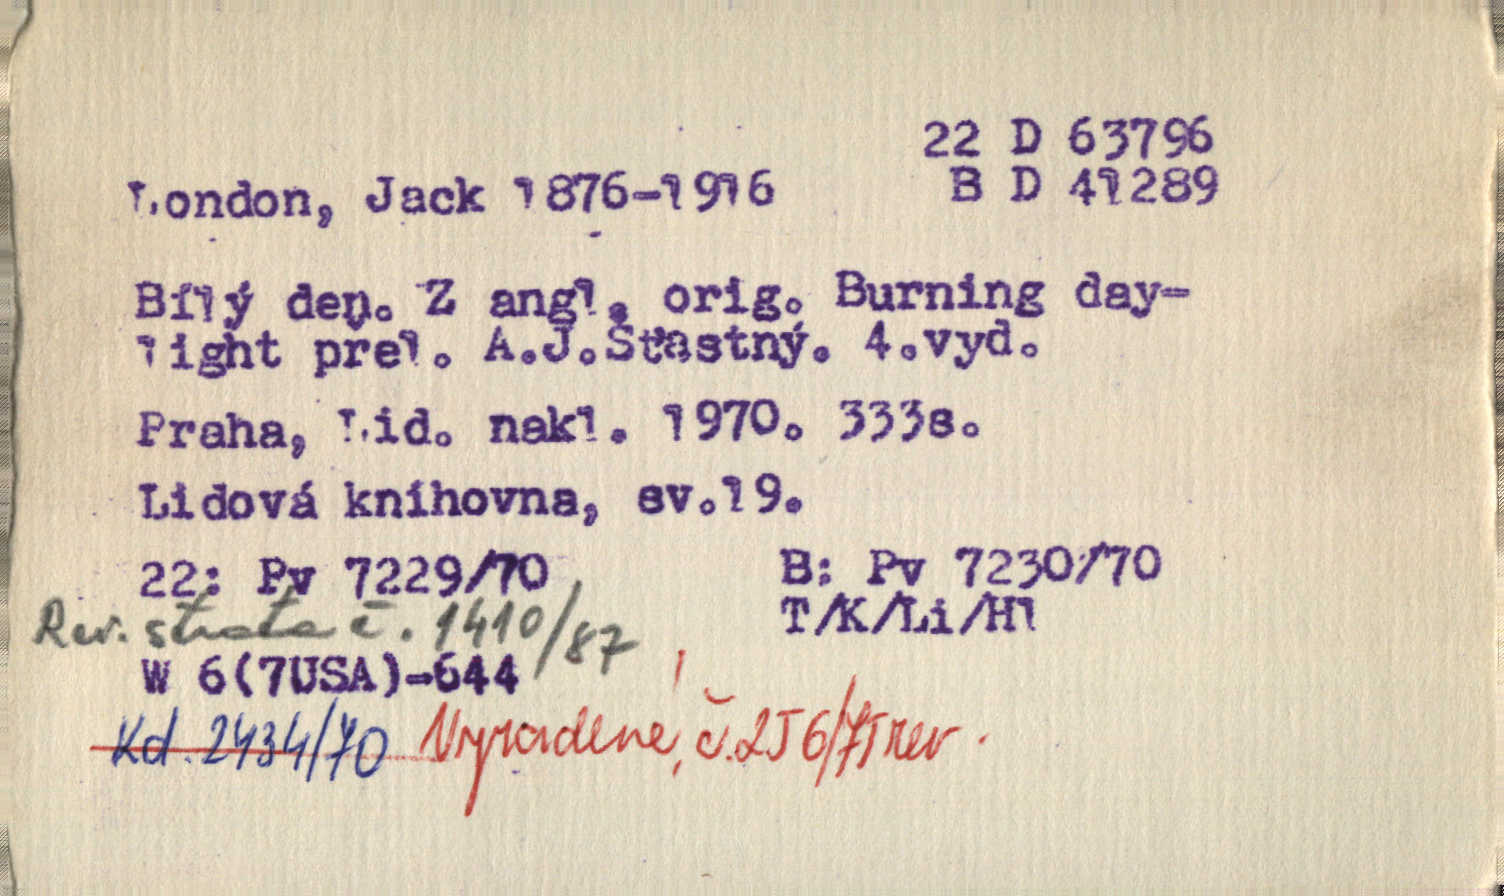 22 D 63796
London, Jack 1876-1916
B D 41289
Bílý deň. Z angl. orig. Burning day-
light přel. A.J.Šťastný. 4.vyd.
Praha, Lid. nakl. 1970. 333s.
Lidová knihovna, sv.19.
22: Pv 7229/70
B: Pv 7230/70
Rev. strata č. 1410/87
T/K/Li/Hl
W 6(7USA)-644
Kd. 2434/70 Vyradené, č.256/75 rev.